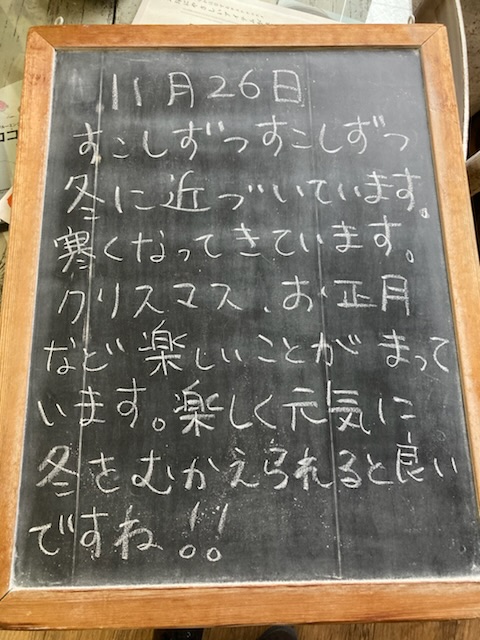 11月26日
すこしずつすこしずつ
冬に近づいています。
寒くなってきています。
クリスマス、お正月
など楽しいことがまって
います。楽しく元気に
冬をむかえられると良い
ですね!!